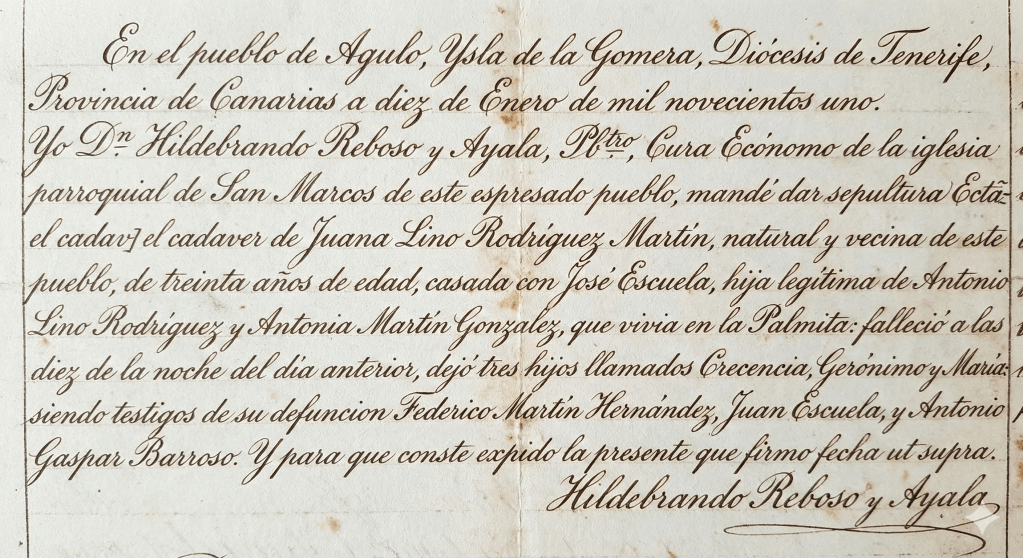 En el pueblo de Agulo, Ysla de la Gomera, Diócesis de Tenerife,
Provincia de Canarias a diez de Enero de mil novecientos uno.
Yo Dn Hildebrando Reboso y Ayala, Pbtro, Cura Ecónomo de la iglesia
parroquial de San Marcos de este espresado pueblo, mandé dar sepultura Ectã=
el cadav] el cadaver de Juana Lino Rodríguez Martín, natural y vecina de este
pueblo, de treinta años de edad, casada con José Escuela, hija legítima de Antonio
Lino Rodríguez y Antonia Martín Gonzalez, que vivia en la Palmita: falleció a las
diez de la noche del día anterior, dejó tres hijos llamados Crecencia, Gerónimo y María:
siendo testigos de su defuncion Federico Martín Hernández, Juan Escuela, y Antonio
Gaspar Barroso. Y para que conste expido la presente que firmo fecha ut supra.
Hildebrando Reboso y Ayala